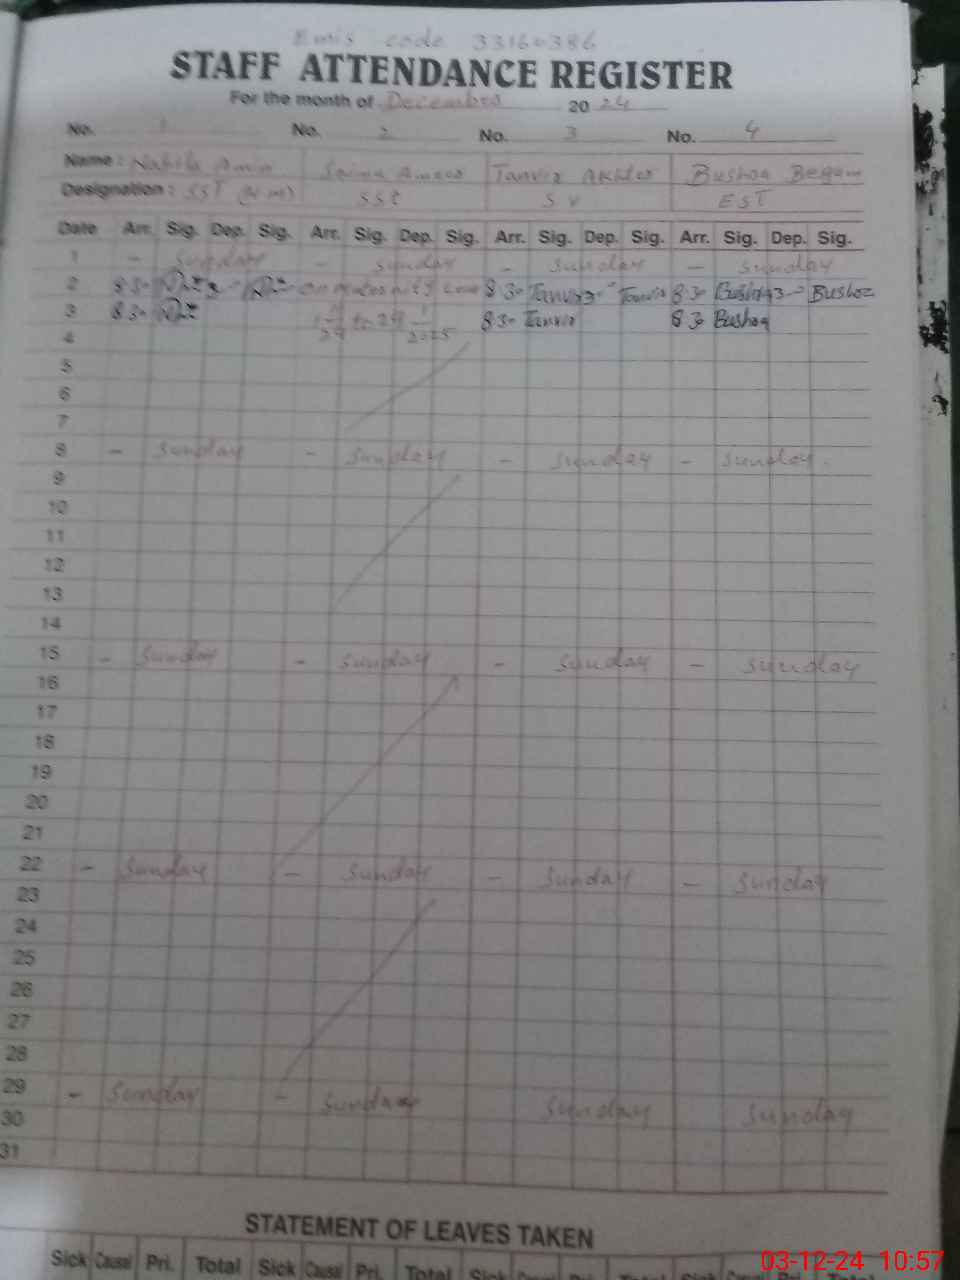 Emis code 33160386
STAFF ATTENDANCE REGISTER
For the month of December 2024
No. 1 No. 2 No. 3 No. 4
Name: Nahila Amin Saima Ameer Tanvir Akhter Bushra Begam
Designation: SST (N M) SST S V EST
Date Arr. Sig. Dep. Sig. Arr. Sig. Dep. Sig. Arr. Sig. Dep. Sig. Arr. Sig. Dep. Sig.
1 - Sunday - Sunday - Sunday - Sunday
2 8.30 3- on maternity Leave 8.30 Tanvir 3- Tanvir 8.30 Bushra 3- Bushra
3 8.30 to 8.30 Tanvir 8.30 Bushra
4 2025
5
6
7
8 - Sunday - Sunday - Sunday - Sunday
9
10
11
12
13
14
15 - Sunday - Sunday - Sunday - Sunday
16
17
18
19
20
21
22 - Sunday - Sunday - Sunday - Sunday
23
24
25
26
27
28
29 - Sunday - Sunday Sunday Sunday
30
31
STATEMENT OF LEAVES TAKEN
Sick Causal Pri. Total Sick Causal Pri. Total Sick Causal Pri. Total
03-12-24 10:57